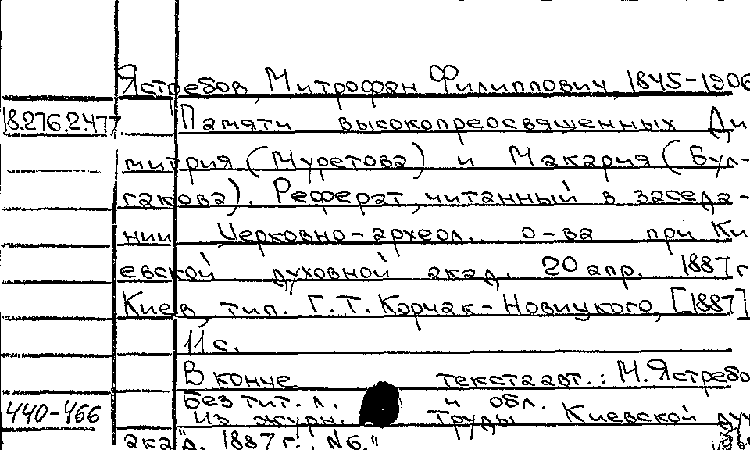 Ястребов, Митрофан Филиппович, 1845-1906
18.276.2.477 Памяти высокопреосвященных Ди-
митрия (Муретова) и Макария (Бул-
гакова). Реферат, читанный в заседа-
нии Церковно-археол. о-ва при Ки-
евской духовной акад. 20 апр. 1887 г.
Киев, тип. Г. Т. Корчак-Новицкого, [1887]
11 с.
В конце текста авт.: М. Ястребо
Без тит. л. и обл.
440-466 Из журн. "Труды Киевской дух
акад". 1887 г., №6."